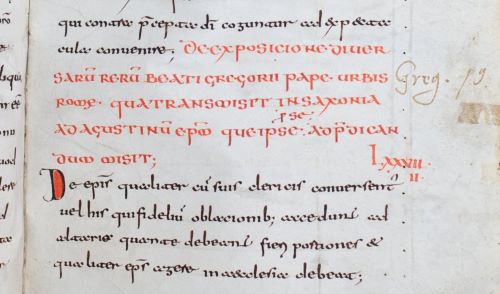 qui contra p̄cepta dī coguntur ad expecta
cula convenire, DE EXPOSICIONE DIVER
SARŪ RERŪ BEATI GREGORII PAPE URBIS
ROME QUA TRANSMISIT IN SAXONIA
AD AGUSTINŪ EP̄M QUE IPSE AD P̄DICAN
DUM MISIT;
LXXXVII
II
De ep̄is qualiter cū suis clericis conversent̄
vel his qui fideliū oblacionib; accedunt ad
altaria quante debeant fieri porciones &
qualiter ep̄s agere in aecclesia debeat;
Greg. 19.